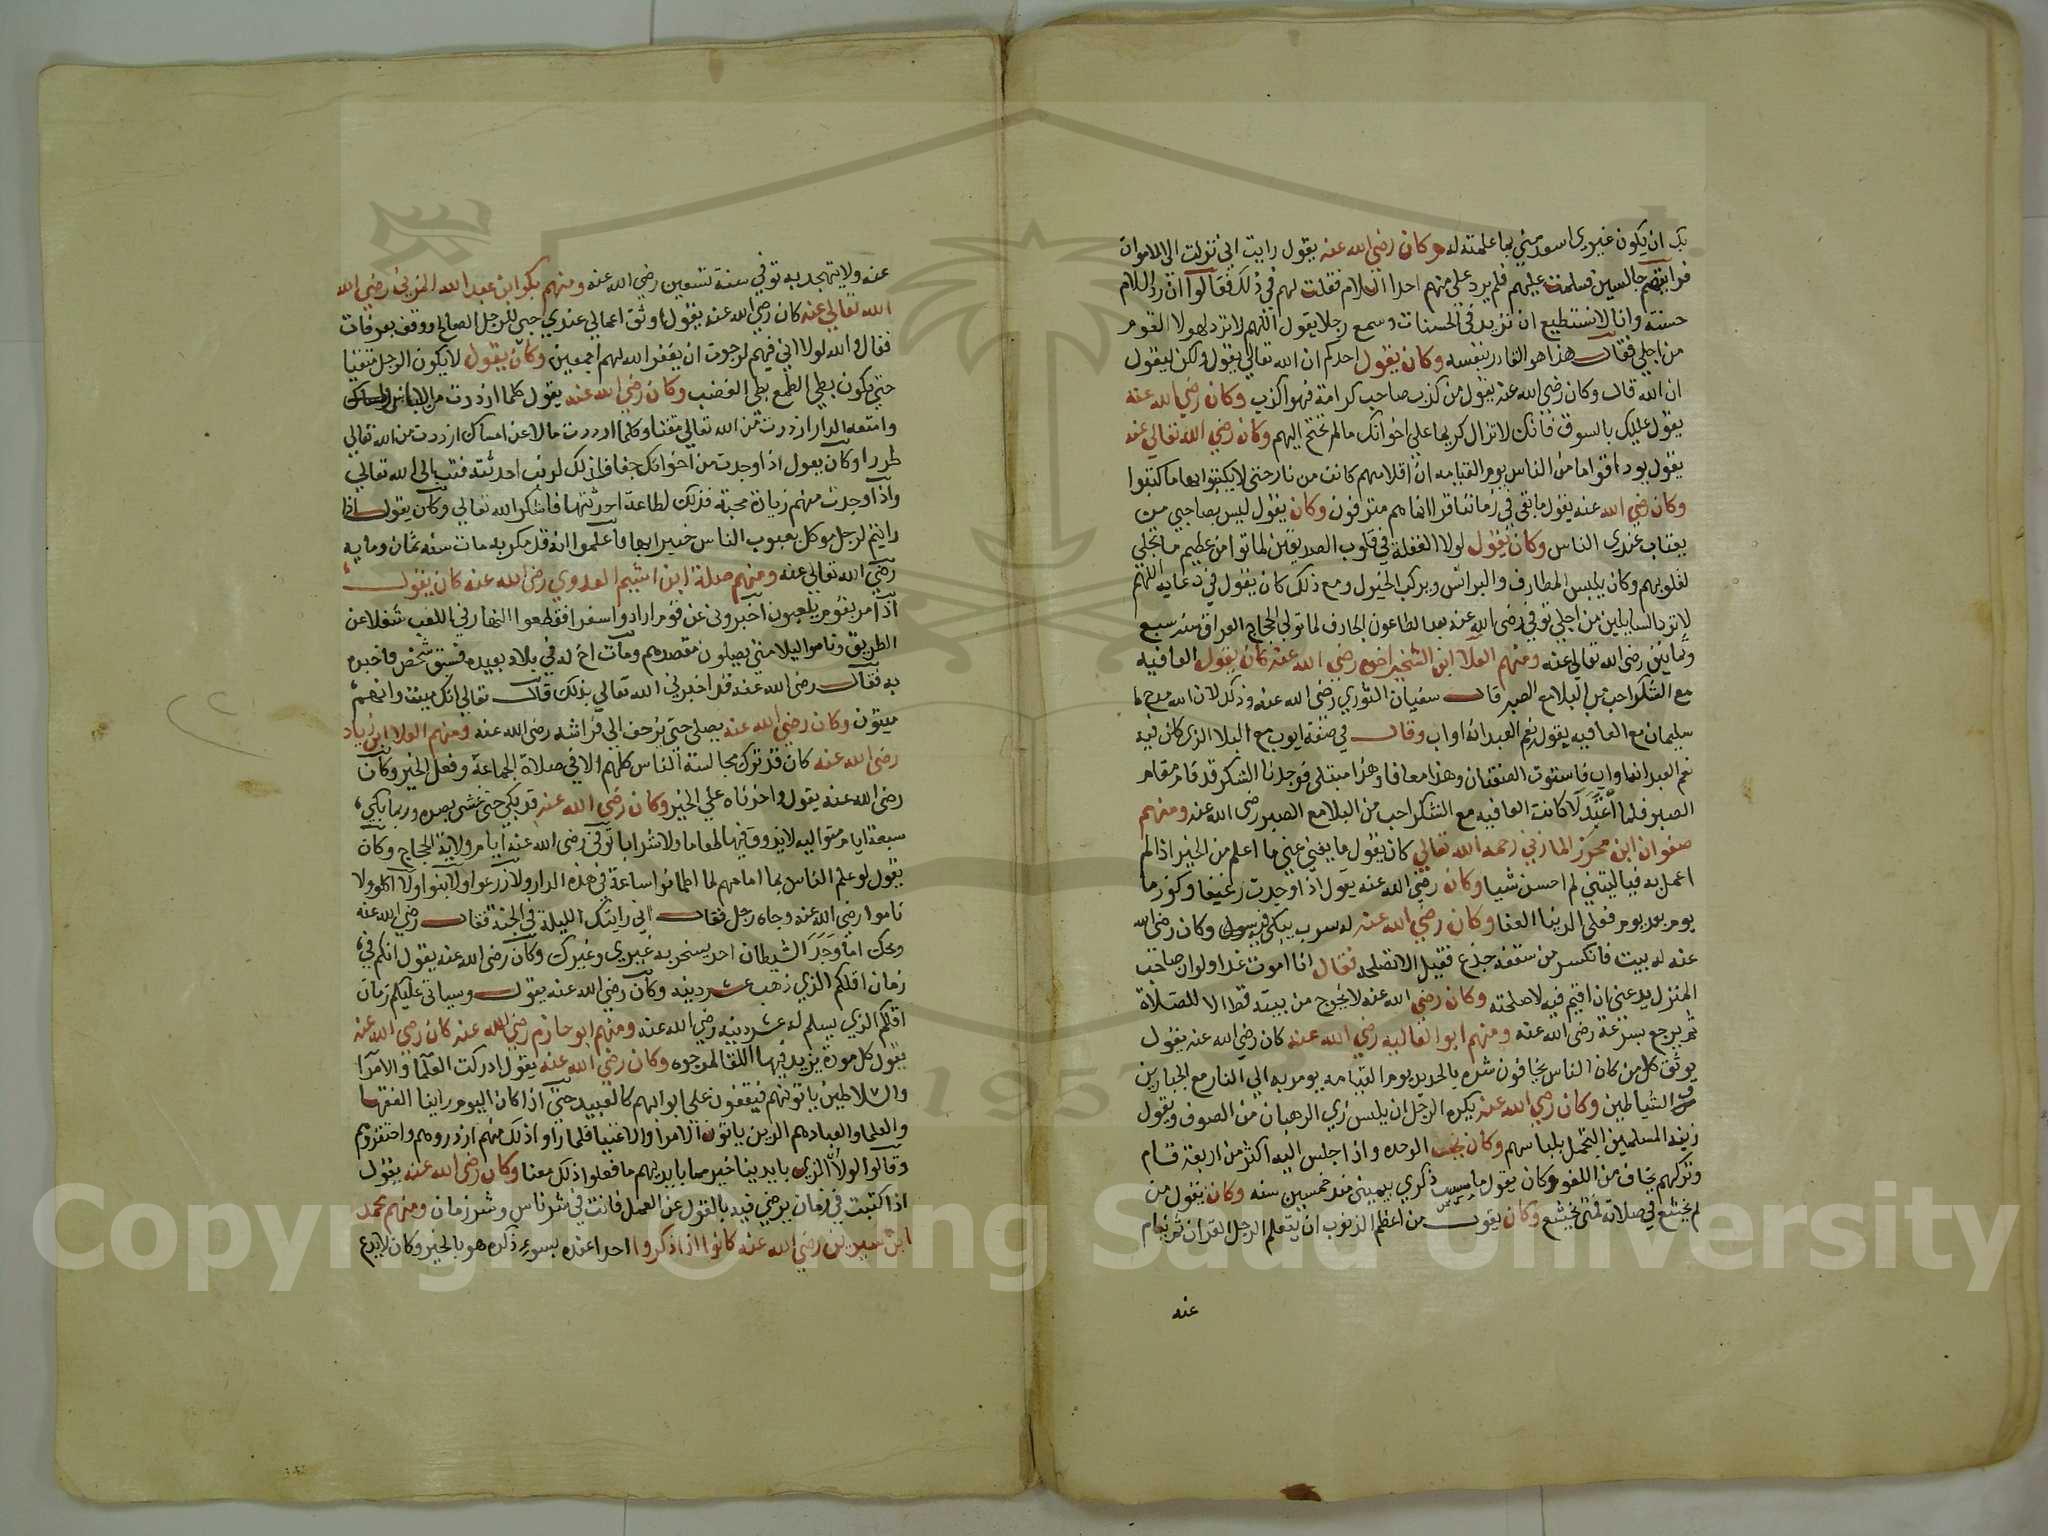 بك ان يكون غيري اسعد مني بما علمته له وكان رضي الله عنه يقول رايت اني نزلت الى الاموات
فرايتهم جالسين فسلمت عليهم فلم يرد علي منهم احدا السلام فقلت لهم في ذلك فقالوا ان رد السلام
حسنة وانا لا نستطيع ان نزيد في الحسنات وسمع رجلا يقول اللهم لا ترد لهولا القوم
من اجلي فقال هذا هو العارف بنفسه وكان يقول احدكم ان الله تعالى يقول ولكن ليقول
ان الله قال وكان رضي الله عنه يقول من كذب صاحب كرامة فهو اكذب وكان رضي الله عنه
يقول عليك بالسوق فانك لا تزال كريما على اخوانك مالم تحتج اليهم وكان رضي الله تعالى عنه
يقول يود اقواما من الناس يوم القيامه ان اقلامهم كانت من نار حتى لا يكتبوا بها ما كتبوا
وكان رضي الله عنه يقول ما بقي في زماننا قرا انما هم مترفون وكان يقول ليس بصاحبي من
يغتاب عندي الناس وكان يقول لولا الغفلة في قلوب الصديقين لماتوا من عظيم ما تجلي
لقلوبهم وكان يلبس المطارف والبرانس ويركب الخيول ومع ذلك كان يقول في دعايه اللهم
لا ترد السايلين من اجلي توفي رضي الله عنه بعد الطاعون الجارف لما تولى الحجاج العراق سنه سبع
وثمانين رضي الله تعالى عنه ومنهم العلا ابن الشخير اخوه رضي الله عنه كان يقول العافيه
مع الشكر احب من البلا مع الصبر قال سفيان الثوري رضي الله عنه وذلك لان الله مدح
سليمان مع العافيه بقوله نعم العبد انه اواب وقال في صفة ايوب مع البلا الذي كان فيه
نعم العبد انه اواب فاستوت الصفتان وهذا معافا وهذا مبتلى فوجدنا الشكر قد قام مقام
الصبر فلما اعتدلا كانت العافيه مع الشكر احب من البلا مع الصبر رضي الله عنه ومنهم
صفوان ابن محرز المازني رحمه الله تعالى كان يقول ما يغني عني ما اعلم من الخير اذا لم
اعمل به فياليتني لم احسن شيا وكان رضي الله عنه يقول اذا وجدت رغيفا وكوز ما
يوم بعد يوم فعلى الدنيا العفا وكان رضي الله عنه له سرب يبكي فيه وكان رضي الله
عنه له بيت فانكسر من سقفه جذع فقيل الا تصلحه فقال انا اموت غدا ولو ان صاحب
المنزل يدعني ان اقيم فيه لاصلحته وكان رضي الله عنه لا يخرج من بيته قط الا للصلاة
ثم يرجع بسرعة رضي الله عنه ومنهم ابو العاليه رضي الله عنه كان رضي الله عنه يقول
يوثق كل من كان الناس يخافون شره بالحديد يوم القيامه يومر به الى النار مع الجبارين
والشياطين وكان رضي الله عنه يكره الرجل ان يلبس زي الرهبان من الصوف ويقول
زينه المسلمين التجمل بلباسهم وكان يحب الوحده واذا جلس اليه اكثر من اربعة قام
وتركهم يخاف من اللغو وكان يقول ما مسست ذكري بيميني منذ خمسين سنه وكان يقول من
لم يخشع في صلاته فمتى يخشع وكان يقول من اعظم الذنوب ان يتعلم الرجل القران ثم ينام
عنه
عنه ولا يتهجد به توفي سنة تسعين رضي الله عنه ومنهم بكر ابن عبد الله المزني رضي الله
الله تعالى عنه كان رضي الله عنه يقول اوثق اعمالي عندي حبي للرجل الصالح ووقف بعرفات
فقال والله لولا اني فيهم لرجوت ان يغفر الله لهم اجمعين وكان يقول لا يكون الرجل تقيا
حتى يكون بطي الطمع بطي الغضب وكان رضي الله عنه يقول كلما ازددت من اللباس
وامتعه الدار ازددت من الله تعالى مقتا وكلما ازددت مالا عن امساك ازددت من الله تعالى
طردا وكان يقول اذا وجدت من اخوانك جفا فذلك لذنب احدثته فتب الى الله تعالى
واذا وجدت منهم زيادة محبة فذلك لطاعة احدثتها فاشكر الله تعالى وكان يقول اذا
رايتم الرجل موكل بعيوب الناس خبيرا بها فاعلموا انه قد مكر به مات سنه ثمان وماية
رضي الله تعالى عنه ومنهم صلة ابن اشيم العدوي رضي الله عنه كان يقول
اذا مر بقوم يلعبون اخبروني عن قوم ارادوا سفرا فقطعوا النهار في اللعب شغلا عن
الطريق وناموا ليلا متى يصلون مقصدهم ومات اخ له في بلاد بعيده فسبق شخص فاخبره
به فقال رضي الله عنه قد اخبرني الله تعالى بذلك قال تعالى انك ميت وانهم
ميتون وكان رضي الله عنه يصلي حتى يزحف الى فراشه رضي الله عنه ومنهم العلا ابن زياد
رضي الله عنه كان قد ترك مجالسة الناس كلهم الا في صلاة الجماعة وفعل الخير وكان
رضي الله عنه يقول واحزناه على الخير وكان رضي الله عنه قد بكى حتى غشى بصره وربما بكى
سبعة ايام متواليه لا يذوق فيها طعاما ولا شرابا توفي رضي الله عنه ايام ولاية الحجاج وكان
يقول لو علم الناس بما امامهم لما اطمانوا ساعة في هذه الدار ولا زرعوا ولا بنوا ولا اكلوا ولا
ناموا رضي الله عنه وجاه رجل فقال اني رايتك الليلة في الجنة فقال رضي الله عنه
ويحك اما وجد الشيطان احد يسخر به غيري وغيرك وكان رضي الله عنه يقول انكم في
زمان اقلكم الذي ذهب عشر دينه وكان رضي الله عنه يقول وسياتي عليكم زمان
اقلكم الذي يسلم له عشر دينه رضي الله عنه ومنهم ابو حازم رضي الله عنه كان رضي الله عنه
يقول كل مودة يزيد فيها اللقا لمدخوله وكان رضي الله عنه يقول ادركت العلما والامرا
والسلاطين ياتونهم فيقفون على ابوابهم كالعبيد حتى اذا كان اليوم راينا الفقها
والعلما والعباد هم الذين ياتون الامرا والاغنيا فلما راوا ذلك منهم ازدروهم واحتقروهم
وقالوا لولا ان الذي بايدينا خير مما بايديهم ما فعلوا ذلك معنا وكان رضي الله عنه يقول
اذا كنت في زمان يرضي فيه بالقول عن العمل فانت في شر ناس وشر زمان ومنهم محمد
ابن سيرين رضي الله عنه كانوا اذا ذكروا احدا عنده بسوء ذكره هو بالخير وكان لا يدع
Copyright © King Saud University
1957